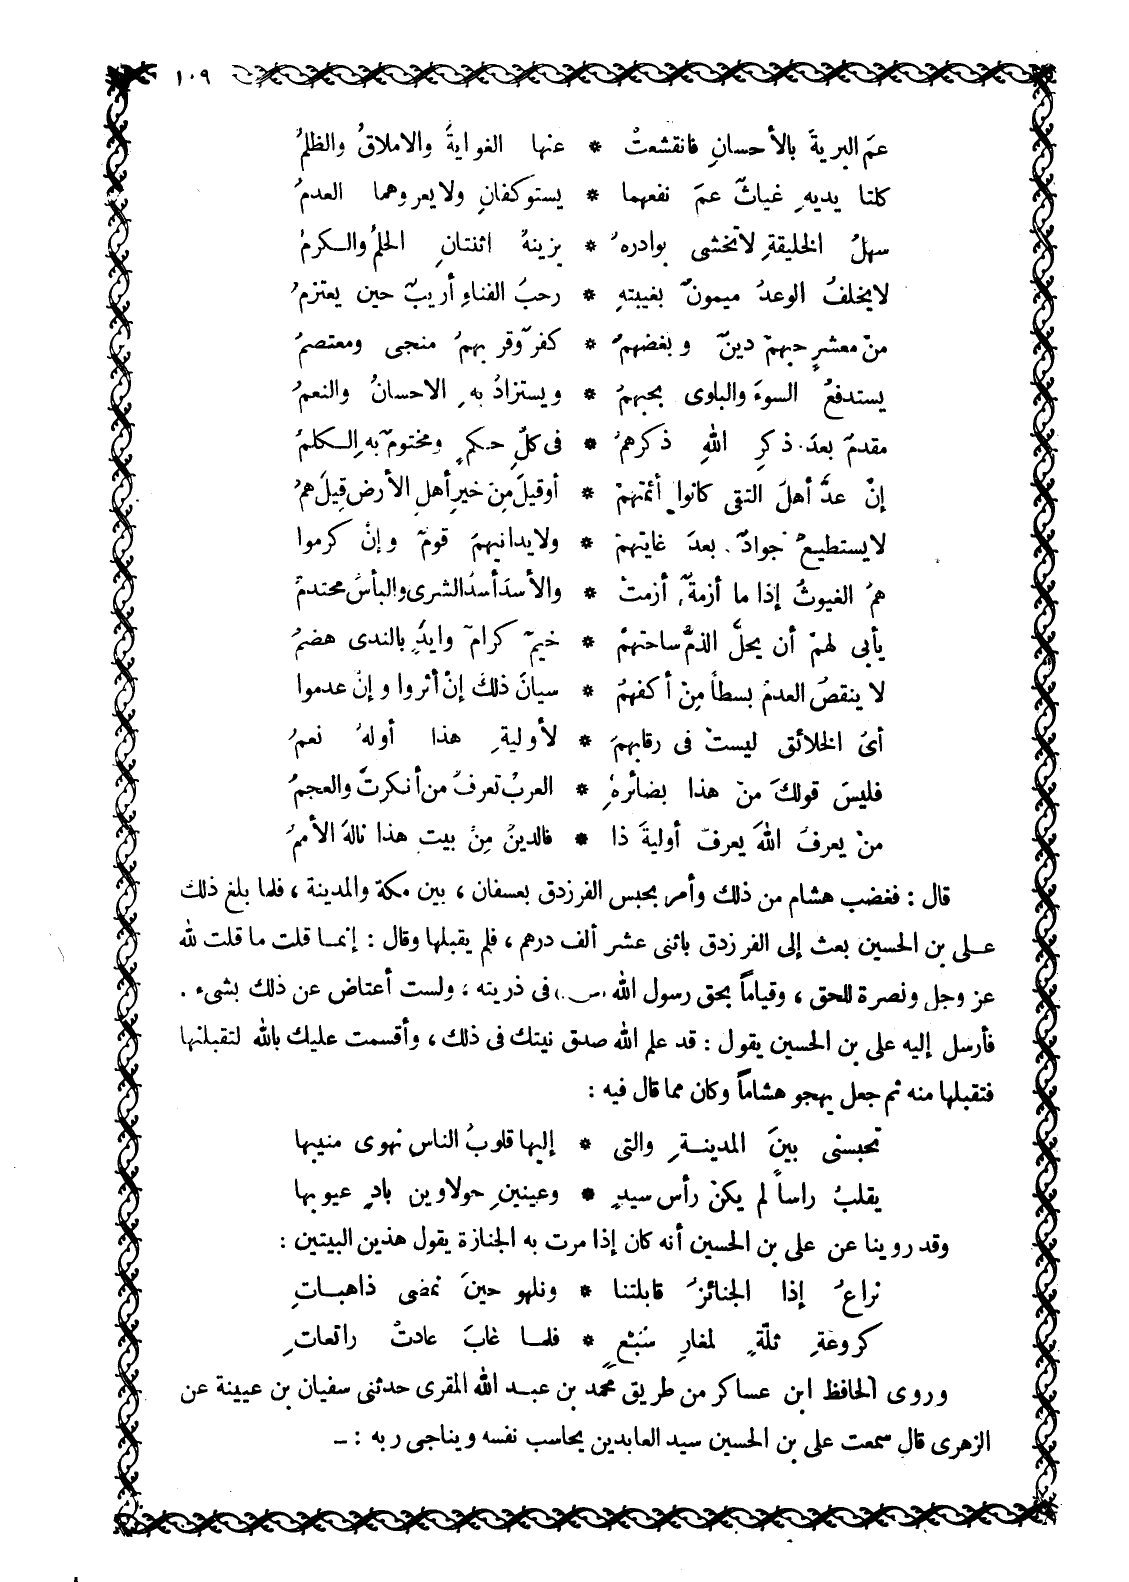 ١٠٩
عمَ البريةَ بالأحسانِ فانقشعتْ * عنها الغوايةُ والاملاقُ والظلمُ
كلتا يديهِ غياثٌ عمَ نفعهما * يستوكفانِ ولا يعروهما العدمُ
سهلُ الخليقةِ لا تخشى بوادرهُ * يزينهُ اثنتانِ الحلمُ والكرمُ
لا يخلفُ الوعدُ ميمونٌ بغيبتهِ * رحبُ الفناءِ أريبٌ حين يعتزمُ
منْ معشرٍ حبهمْ دينٌ وبغضهمُ * كفرٌ وقربهمُ منجى ومعتصمُ
يستدفعُ السوءَ والبلوى بحبهمُ * ويستزادُ بهِ الاحسانُ والنعمُ
مقدمٌ بعدَ ذكرِ اللهِ ذكرهمُ * فى كلِّ حكمٍ ومختومٌ بهِ الكلمُ
إنْ عدَّ أهلَ التقى كانوا أئمتهمْ * أوقيلَ منَ خيرِ أهلِ الأرضِ قيلَ همُ
لا يستطيعُ جوادٌ بعدَ غايتهمْ * ولا يدانيهمَ قومٌ وإنْ كرموا
همُ الغيوثُ إذا ما أزمةٌ أزمتْ * والأسدَ أسدُ الشرى والبأسُ محتدمْ
يأبى لهمْ أن يحلَّ الذمُّ ساحتهمْ * خيمٌ كرامٌ وايدٍ بالندى هضمُ
لا ينقصُ العدمُ بسطاً منْ أكفهمُ * سيانَ ذلكَ إنْ أثروا وإنْ عدموا
أىُ الخلائق ليستْ فى رقابهمَ * لأوليةِ هذا أولهُ نعمُ
فليسَ قولكَ منْ هذا بضائرهِ * العربُ تعرفُ من أنكرتَ والعجمُ
منْ يعرفُ اللهَ يعرفُ أوليةَ ذا * فالدينُ مِنْ بيت هذا نالهَ الأممُ
قال : فغضب هشام من ذلك وأمر بحبس الفرزدق بعسفان ، بين مكة والمدينة ، فلما بلغ ذلك
على بن الحسين بعث إلى الفرزدق باثنى عشر ألف درهم ، فلم يقبلها وقال : إنما قلت ما قلت لله
عز وجل ونصرة للحق ، وقياماً بحق رسول الله (س) فى ذريته ، ولست أعتاض عن ذلك بشىء .
فأرسل إليه على بن الحسين يقول : قد علم الله صدق نيتك فى ذلك ، وأقسمت عليك بالله لتقبلنها
فتقبلها منه ثم جعل يهجو هشاماً وكان مما قال فيه :
تحبسنى بينَ المدينةِ والتى * إليها قلوبُ الناس تهوى منيبها
يقلبُ راساً لم يكنْ رأس سيدٍ * وعينينِ حولاوين بادٍ عيوبها
وقد روينا عن على بن الحسين أنه كان إذا مرت به الجنازة يقول هذين البيتين :
نراعُ إذا الجنائزُ قابلتنا * ونلهو حينَ تمضى ذاهباتِ
كروعةِ ثلّةٍ لمغارِ سَبْعٍ * فلما غابَ عادتْ راتعاتِ
وروى الحافظ ابن عساكر من طريق محمد بن عبد الله المقرى حدثنى سفيان بن عيينة عن
الزهرى قال سمعت على بن الحسين سيد العابدين يحاسب نفسه ويناجى ربه : ــ